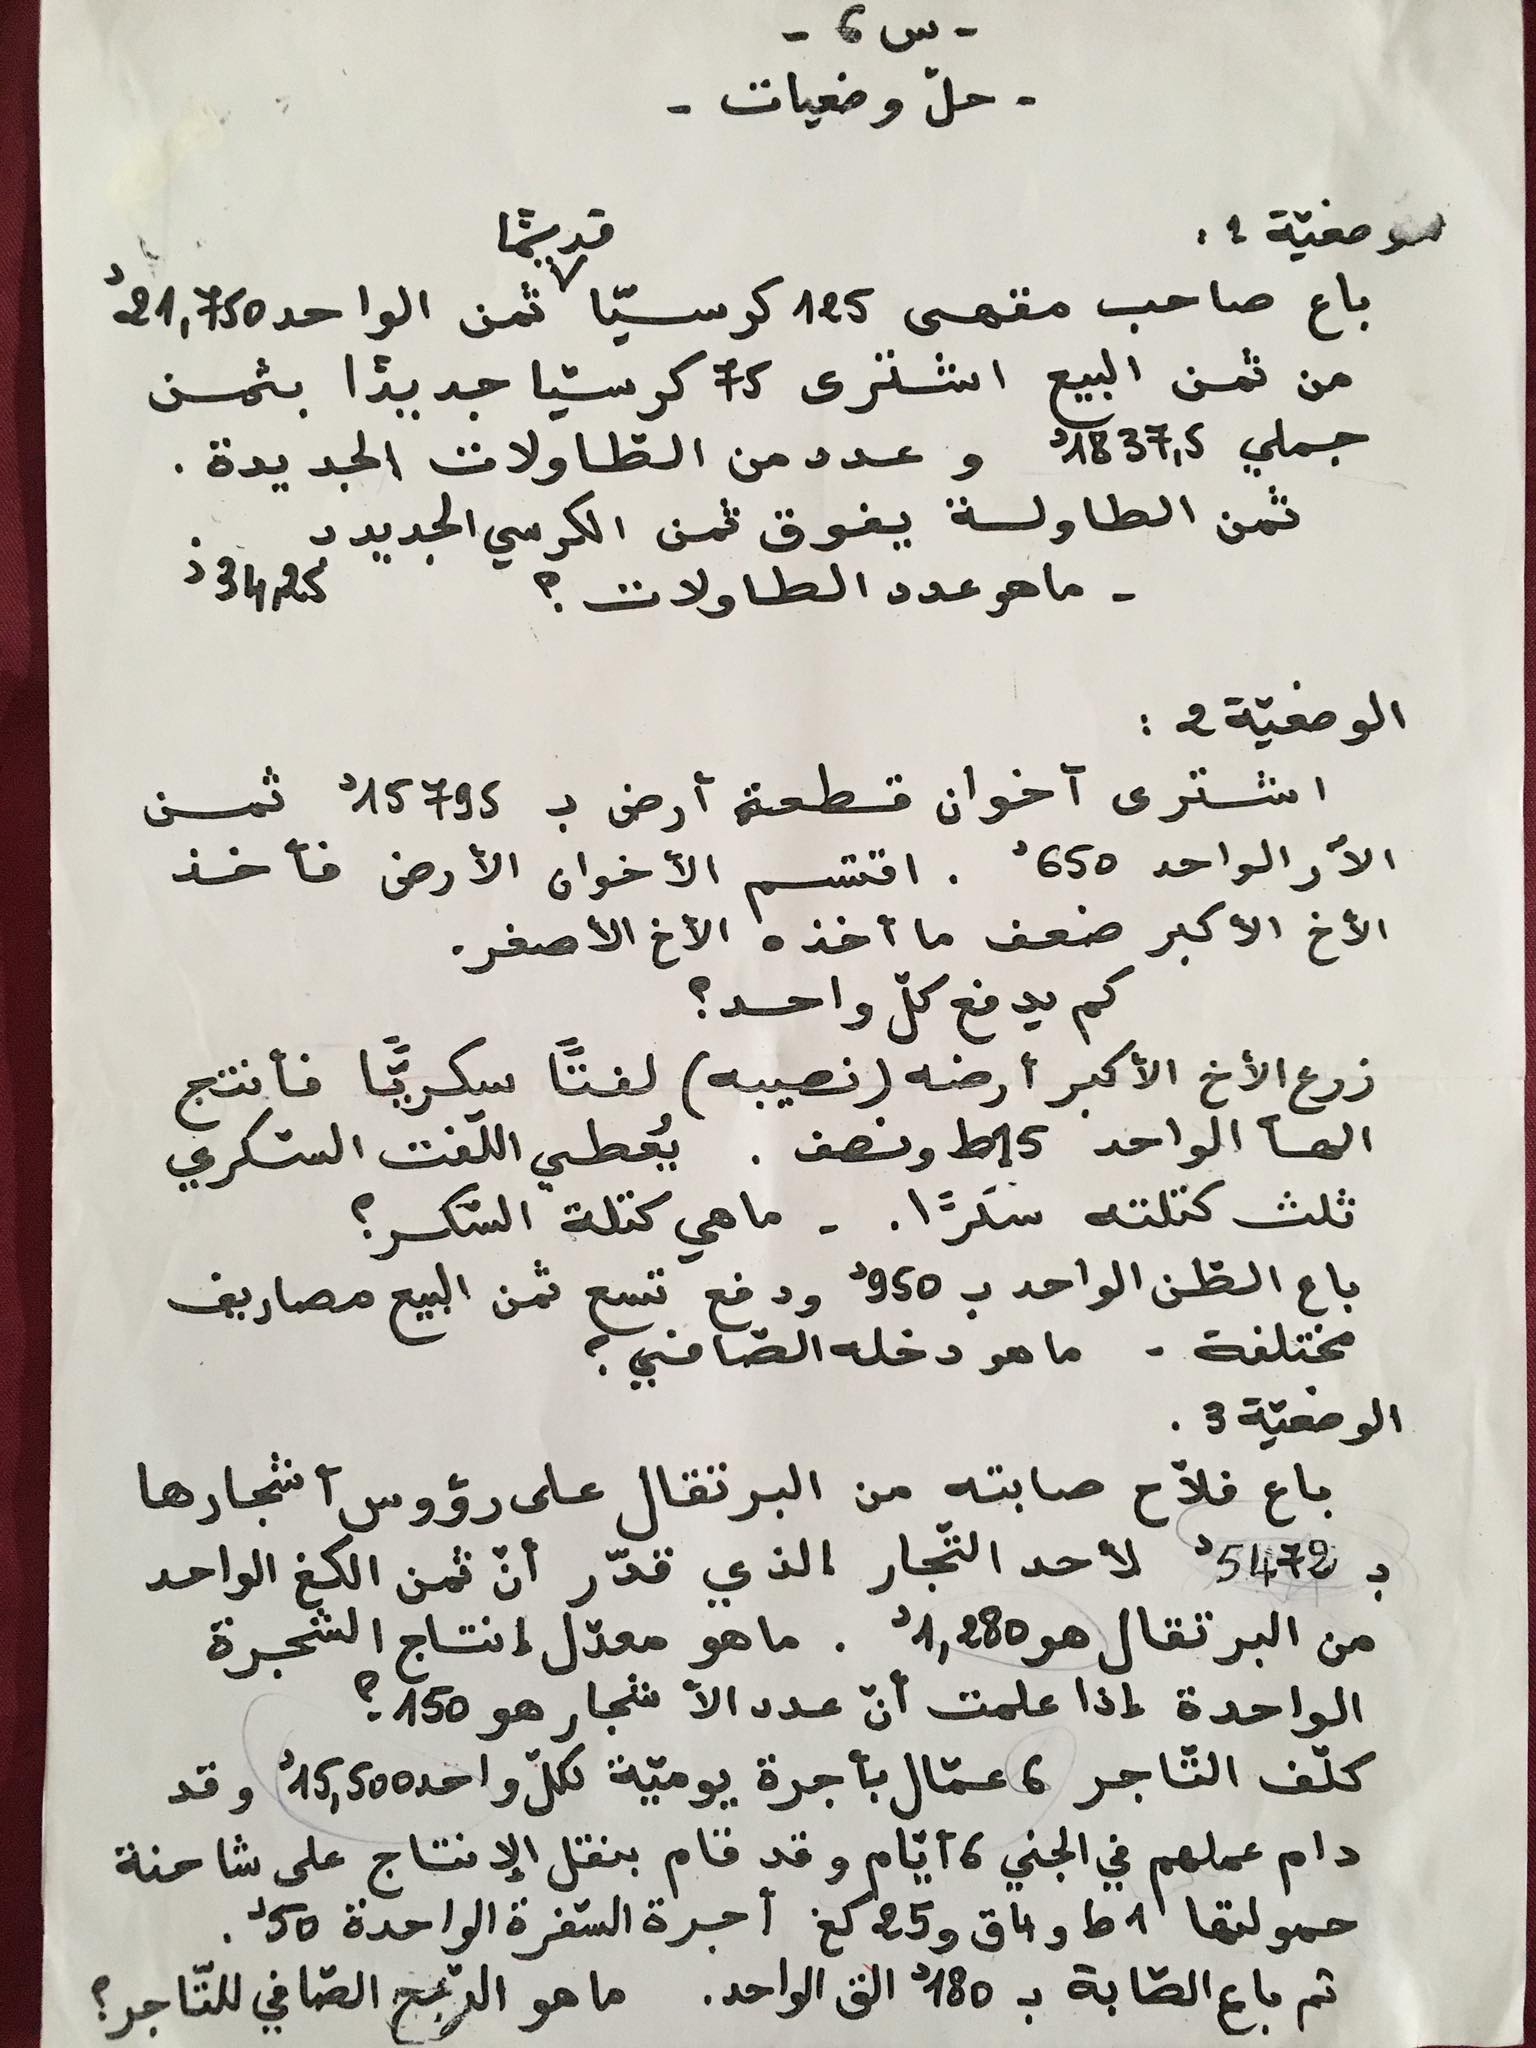 - س 6 -
- حلّ وضعيات -
وضعيّة 1 :
قديمًا
باع صاحب مقهى 125 كرسيّا ثمن الواحد 21,750د
من ثمن البيع اشترى 75 كرسيّا جديدًا بثمن
جملي 1837,5د و عدد من الطّاولات الجديدة .
ثمن الطاولة يفوق ثمن الكرسي الجديد بـ
34,25د
- ماهو عدد الطاولات ؟
الوضعيّة 2 :
اشترى أخوان قطعة أرض بـ 15795د ثمن
الآر الواحد 650د . اقتسم الأخوان الأرض فأخذ
الأخ الأكبر ضعف ما أخذه الأخ الأصغر .
كم يدفع كلّ واحد ؟
زرع الأخ الأكبر أرضه (نصيبه) لفتًا سكريًّا فأنتج
الهآ الواحد 15ط ونصف . يُعطي اللّفت السّكري
ثلث كتلته سكرًا . - ماهي كتلة السّكر ؟
باع الطّن الواحد بـ 950د ودفع تسع ثمن البيع مصاريف
مختلفة - ماهو دخله الصّافي ؟
الوضعيّة 3 .
باع فلاّح صابته من البرتقال على رؤوس أشجارها
بـ 5472د لأحد التّجار الذي قدّر أنّ ثمن الكغ الواحد
من البرتقال هو 1,280د . ماهو معدّل إنتاج الشجرة
الواحدة إذا علمت أنّ عدد الأشجار هو 150 ؟
كلّف التّاجر 6 عمّال بأجرة يوميّة لكلّ واحد 15,500د وقد
دام عملهم في الجني 6 أيّام وقد قام بنقل الإنتاج على شاحنة
حمولتها 1ط و 4ق و 25 كغ أجرة السّفرة الواحدة 50د .
ثم باع الصّابة بـ 180د الق الواحد . ماهو الرّبح الصّافي للتّاجر ؟